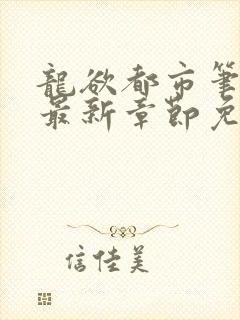 龍欲都市筆
最新章節免
信佳美